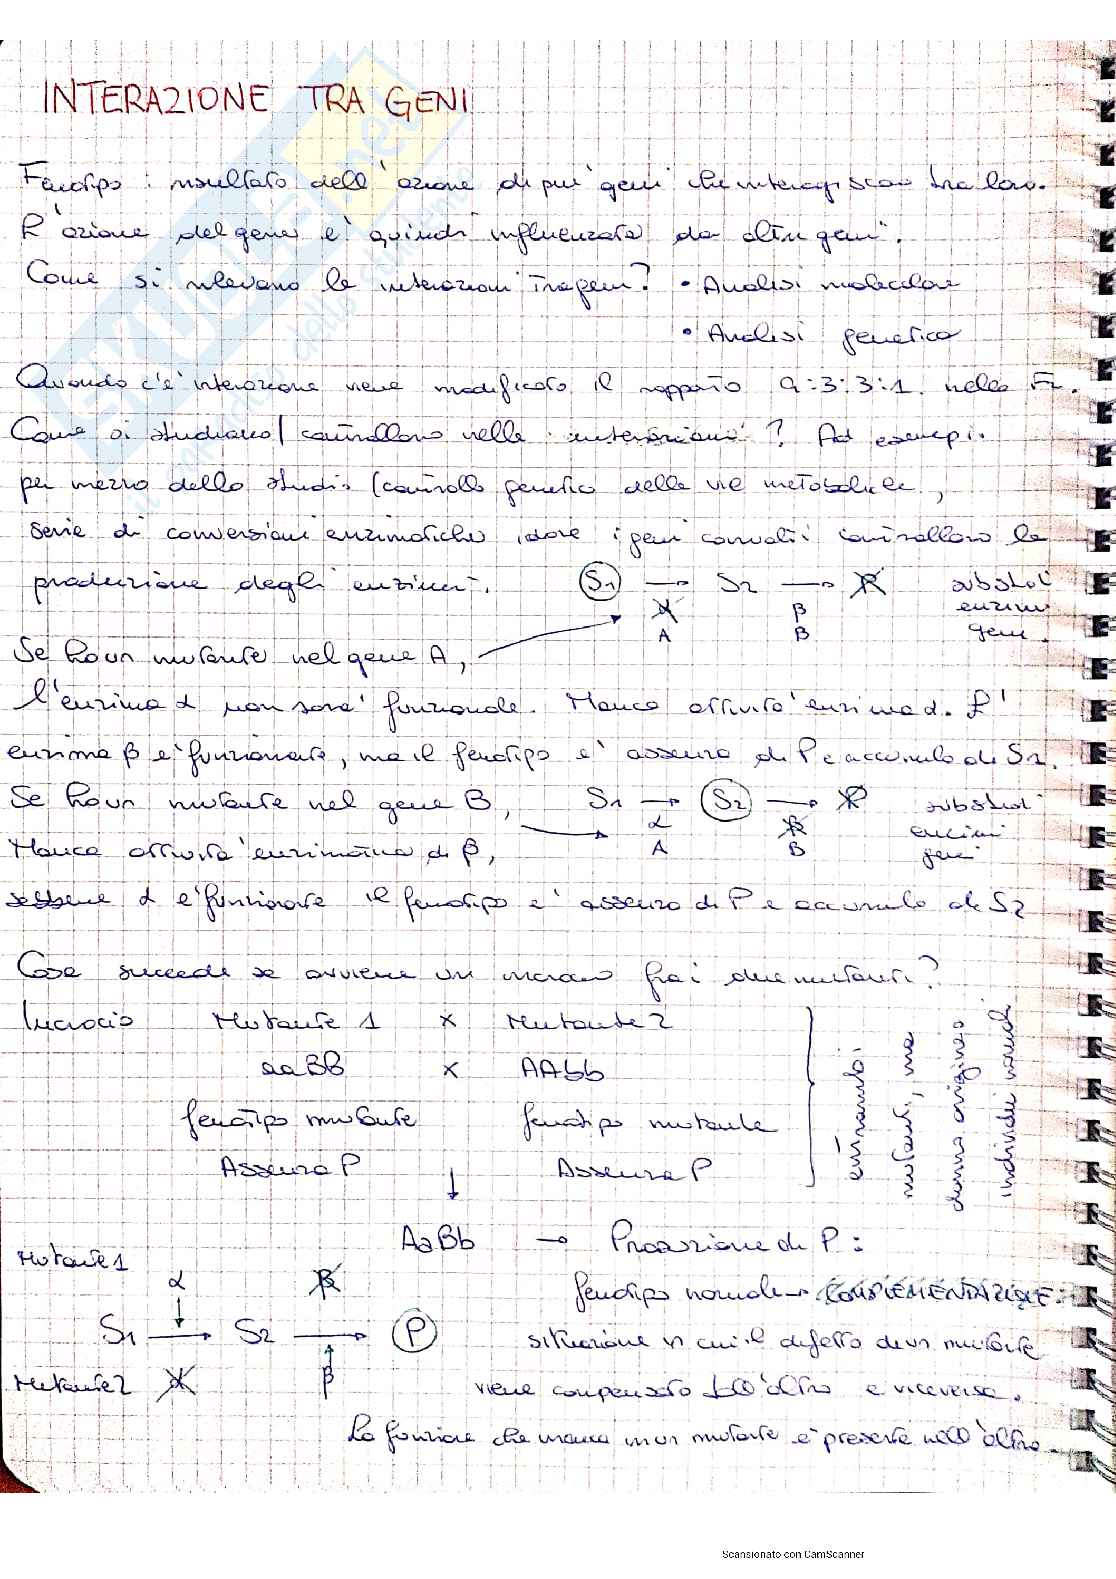 INTERAZIONE TRA GENI
Fenotipo: risultato dell'azione di più geni che interagiscono tra loro.
L'azione del gene è quindi influenzata da altri geni.
Come si rilevano le interazioni tra geni? • Analisi molecolare
• Analisi genetica
Quando c'è interazione viene modificato il rapporto 9:3:3:1 nella F2.
Come si studiano/controllano nelle interazioni? Ad esempi.
per mezzo dello studio/controllo genetico delle vie metaboliche,
serie di conversioni enzimatiche dove i geni coinvolti controllano la
produzione degli enzimi. S1 → S2 → P substrati
α β enzimi
A B geni.
Se ho un mutante nel gene A,
l'enzima α non sarà funzionale. Manca attività enzima α. L'
enzima β è funzionante, ma il fenotipo è assenza di P e accumulo di S1.
Se ho un mutante nel gene B, S1 → S2 → P substrati
α β enzimi
A B geni
Manca attività enzimatica di β,
sebbene α è funzionante il fenotipo è assenza di P e accumulo di S2
Cosa succede se avviene un incrocio fra i due mutanti?
Incrocio Mutante 1 x Mutante 2
aaBB x AAbb
fenotipo mutante fenotipo mutante
Assenza P Assenza P
entrambi
mutanti, ma
danno origine a
individui normali
AaBb → Produzione di P:
Mutante 1
α β
fenotipo normale → COMPLEMENTAZIONE:
S1 → S2 → P situazione in cui il difetto di un mutante
Mutante 2 α β viene compensato dall'altro e viceversa.
La funzione che manca in un mutante è presente nell'altro.
Scansionato con CamScanner